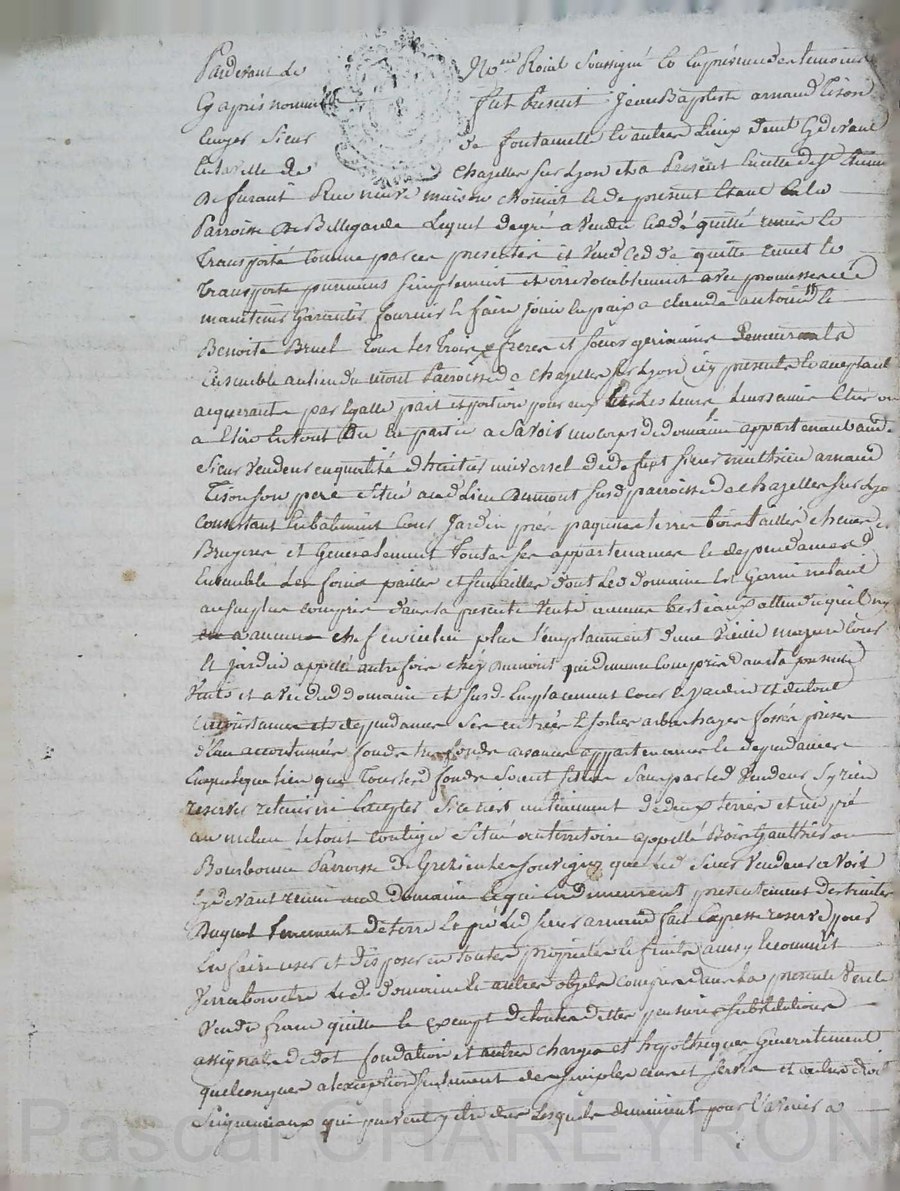 Pardevant Le No.re Roial Soussigné Et En présence des temoins
Cy apres nommés fut Present Jean Baptiste arnaud tison
Sieur de fontanelle et autres Lieux demt Cydevant
En la ville de Chazelles sur Lyon et a Present En celle de St Etienne
De furant Rue neuve maison de present Etant En la
Parroisse de Bellegarde Lequel de gré a vendu cedé quitté remis Et
Transporté comme par ces presentes il vend cede quitte remet Et
Transporte purement simplement et irrevocablement avec promesse de
maintenir Garantir fournir Et faire jouir En paix a Claude antoine Et
Benoite Bruel tous Les trois freres et soeurs germains demeurants
Ensemble au lieu du mont Parroisse de Chazelles sur Lyon icy presents Et acceptants
acquerants par Egalle part et portion pour eux Et Les Leurs
a Elire En tout ou En partie a Savoir un corps de domaine appartenant aud.
Sieur vendeur en qualité d'heritier universel de defunt Sieur mathieu arnaud
Tison son pere Situé aud Lieu Dumont susd parroisse de Chazelles sur Lyon
Consistant En batiment Cour Jardin prés paquiers terres bois taillés
Bruyeres et Generalement toutes ses appartenances Et dependances
Ensemble Les foins pailles et dont Led domaine Est Garni n'etant
au surplus compris dans la presente vente aucuns bestiaux attendu qu'il n'y
en a aucuns plus L'emplacement d'une vieille mazure Cour
Et jardin appellé autrefois chez qui demeure Compris dans la presente
Vente et avec Led domaine et susd. Emplacement cour Et jardin et de tout
Circonstances et dependances entrées Et sorties abbreuvages fossés prises
d'Eau accoutumées fonds tres fonds aisances appartenances Et dependances
En quelque lieu que Tous Led fonds Soient Situés Sans par led Vendeur S'y rien
reserver retenir ni Excepter Si ce n'est un tenement de deux terres et un pré
au milieu Le tout Contigu Situé au territoire appellé Bois Gauthier ou
Bourbonne Parroisse de Grezieu Le que led Sieur Vendeur avoit
Cydevant reuni aud Domaine Et qui En demeurent presentement distraits
Duquel tenement de terre Et pré Led Sieur arnaud fait Expresse reserve pour
En faire user et disposer en toutes proprietés Et fruits ainsy
Led domaine Et autres objets Compris dans La presente Vente
Vendu franc quitte Et exempt de toutes dettes pensions Substitutions
assignats de dot fondation et autres charges et hypotheques Generalement
quelconques a l'exception seulement des simples cens et servis et autres droits
Seigneuriaux qui peuvent y etre dus Lesquels demeurent pour L'avenir a
Pascal CHAREYRON